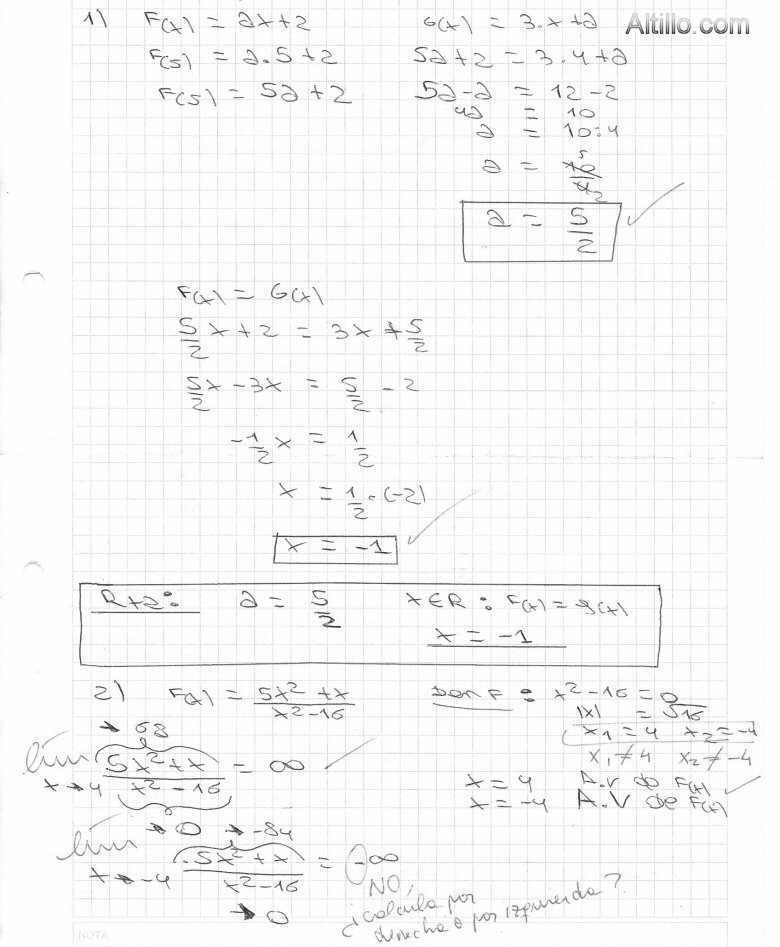 Altillo.com
1) F(x) = ax+2 G(x) = 3.x+a
F(5) = a.5+2 5a+2 = 3.4+a
F(5) = 5a+2 5a-a = 12-2
4a = 10
a = 10:4
a = 10/4 5/2
a = 5/2
F(x) = G(x)
5/2 x + 2 = 3x + 5/2
5/2 x - 3x = 5/2 - 2
-1/2 x = 1/2
x = 1/2 . (-2)
x = -1
Rta: a = 5/2 x ∈ R : F(x) = g(x)
x = -1
2) F(x) = 5x² + x / x² - 16 Dom F : x² - 16 = 0
|x| = √16
x₁ = 4 x₂ = -4
x₁ ≠ 4 x₂ ≠ -4
→ 68
lím x→4 5x² + x / x² - 16 = ∞
→ 0
x = 4 A.v de F(x)
x = -4 A.V de F(x)
→ -84
lím x→-4 5x² + x / x² - 16 = -∞
→ 0
NO,
¿calcula por
derecha o por izquierda?
NOTA